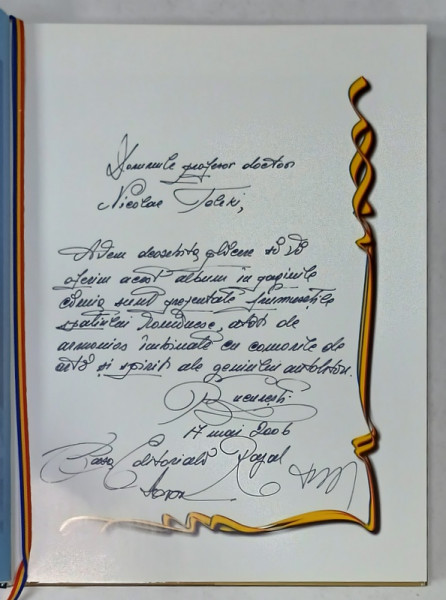 Domnule profesor doctor
Nicolae
Avem deosebita plăcere să vă
oferim acest album în paginile
căruia sunt prezentate frumusețile
spațiului românesc, atât de
armonios îmbinate cu comorile de
artă și spirit ale geniului autohton.
București
17 mai 2006
Casa Editorială Royal